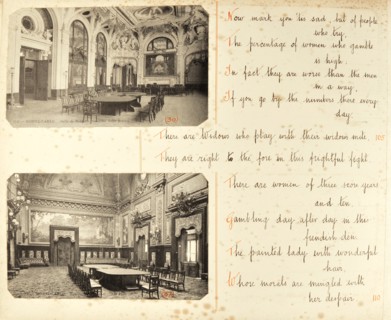 Now mark you 'tis sad, but of people
who try.
The percentage of women who gamble
is high.
In fact they are worse than the men
in a way.
If you go by the numbers there every
day.
There are Widows who play with their widows mite.
They are right to the fore in this frightful fight
There are women of three score years
and ten.
Gambling day after day in the
fiendish den.
The painted lady with wonderful
hair.
Whose morals are mingled with
her despair.